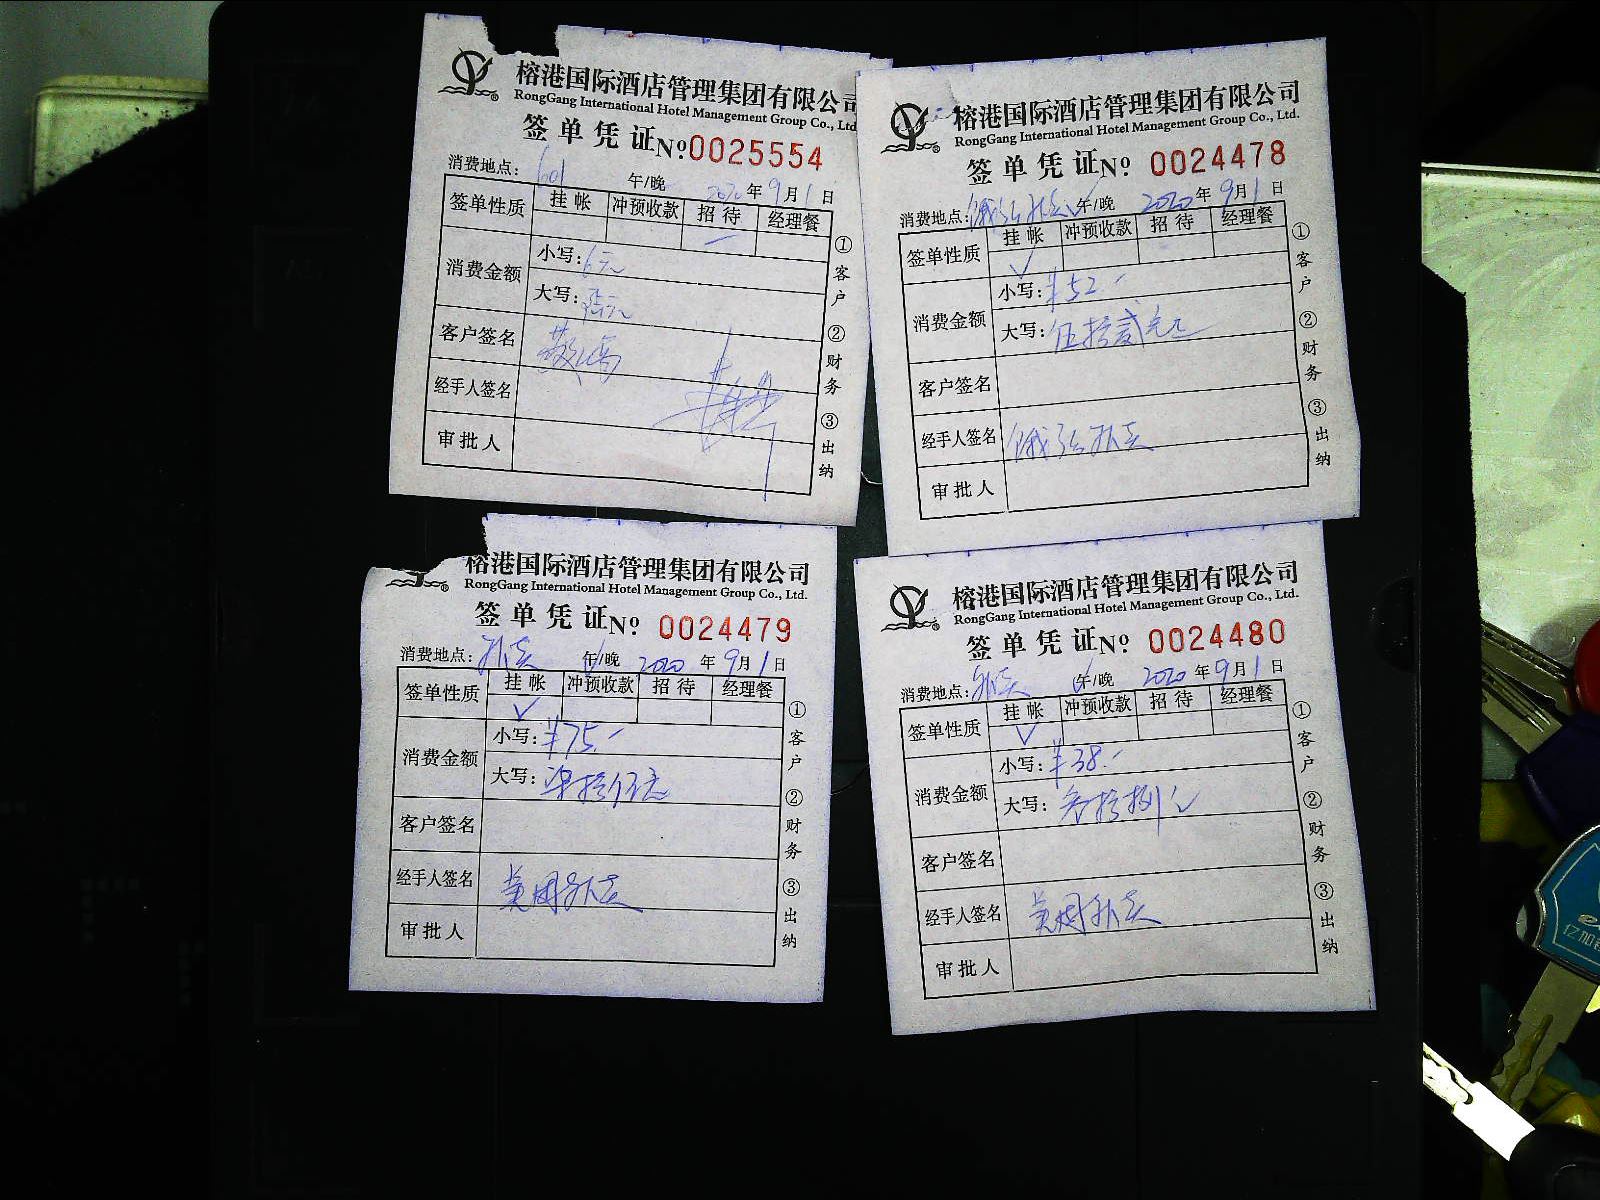 榕港国际酒店管理集团有限公司
RongGang International Hotel Management Group Co., Ltd.
签单凭证 Nº 0025554
消费地点: 601 午/晚 2020年9月1日
签单性质 挂帐 冲预收款 招待 经理餐
消费金额 小写: 6元
大写: 陆元
客户签名
经手人签名
审批人
①客户 ②财务 ③出纳
榕港国际酒店管理集团有限公司
RongGang International Hotel Management Group Co., Ltd.
签单凭证 Nº 0024478
消费地点: 外卖 午/晚 2020年9月1日
签单性质 挂帐 冲预收款 招待 经理餐
✓
消费金额 小写: ¥52.-
大写: 伍拾贰元
客户签名
经手人签名 外卖
审批人
①客户 ②财务 ③出纳
榕港国际酒店管理集团有限公司
RongGang International Hotel Management Group Co., Ltd.
签单凭证 Nº 0024479
消费地点: 外卖 午/晚 2020年9月1日
签单性质 挂帐 冲预收款 招待 经理餐
✓
消费金额 小写: ¥75.-
大写: 柒拾伍元
客户签名
经手人签名 美团外卖
审批人
①客户 ②财务 ③出纳
榕港国际酒店管理集团有限公司
RongGang International Hotel Management Group Co., Ltd.
签单凭证 Nº 0024480
消费地点: 外卖 午/晚 2020年9月1日
签单性质 挂帐 冲预收款 招待 经理餐
✓
消费金额 小写: ¥38.-
大写: 叁拾捌元
客户签名
经手人签名 美团外卖
审批人
①客户 ②财务 ③出纳